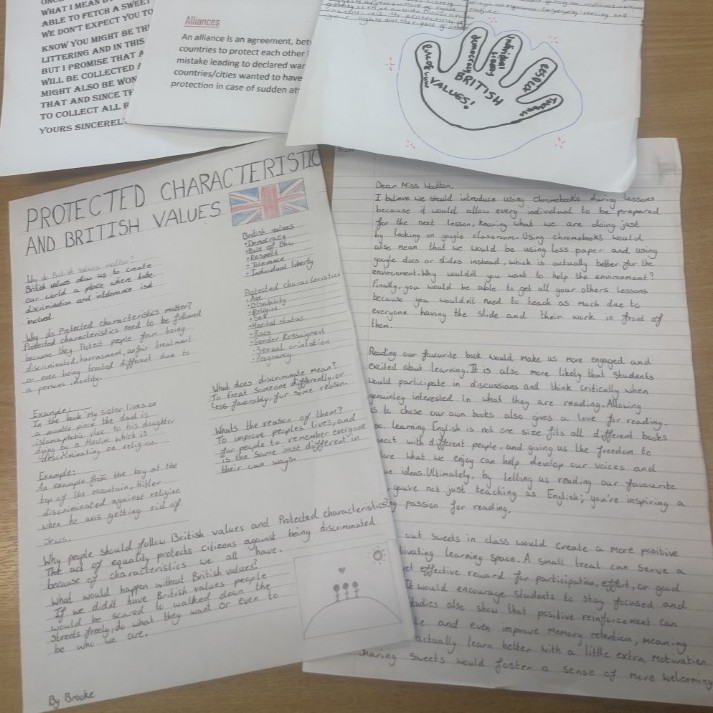 WHAT I MEAN BY
ABLE TO FETCH A SWEET
WE DON'T EXPECT YOU TO
KNOW YOU MIGHT BE TH
LITTERING AND IN THIS
BUT I PROMISE THAT A
WILL BE COLLECTED A
MIGHT ALSO BE WON
THAT AND SINCE TH
TO COLLECT ALL R
YOURS SINCEREL
Alliances
An alliance is an agreement, bet
countries to protect each other
mistake leading to declared war
countries/cities wanted to have
protection in case of sudden att
Rule of law
democracy
individual liberty
RESPECT
Tolerance
BRITISH
VALUES!
PROTECTED CHARACTERISTIC
AND BRITISH VALUES
British values
•Democracy
•Rule of law
•Respect
•Tolerance
•Individual liberty
Protected characteristics
•Age
•Disability
•Religion
•Sex
•Marital status
•Race
•Gender Reassigned
•Sexual orientation
•Pregnancy
Why do British values matter?
British values allow us to create
our world a place where hate
discrimination and intolerance isnt
involved.
Why do Protected characteristics matter?
Protected characteristics need to be followed
because they Protect people from being
discriminated, harrasment, unfair treatment
or even being treated different due to
a persons identity.
Example:
In the book my sister lives on
a mantle piece the dad is
islamaphobic due to his daughter
dying by a Muslim which is
discriminating on religion.
Example:
An example from the boy at the
top of the mountain; Hitler
discriminated against religion
when he was getting rid of
Jews.
What does discriminate mean?
To treat someone differently or
less favorably, for some reason.
Whats the reason of them?
To improve peoples' lives, and
for people to remember everyone
is the same just different in
their own ways.
Why people should follow British values and Protected characteristics?
The act of equality protects citizens against being discriminated
because of characteristics we all have.
What would happen without British values?
If we didnt have British values people
would be scared to walked down the
streets freely, do what they want or even to
be who we are.
By Brooke
Dear Miss
I believe we should introduce using chromebooks during lessons
because it would allow every individual to be prepared
for the next lesson, knowing what we are doing just
by looking on google classroom. Using chromebooks would
also mean that we would be using less paper and using
google docs or slides instead, which is actually better for the
environment. Why wouldn't you want to help the environment?
Finally, you would be able to get all your others lessons
because you wouldn't need to teach as much due to
everyone having the slide and their work in front of
them.
Reading our favourite book would make us more engaged and
excited about learning. It is also more likely that students
would participate in discussions and think critically when
genuinley interested in what they are reading. Allowing
us to chose our own books also gives a love for reading.
learning English is not one size fits all different books
nect with different people, and giving us the freedom to
what we enjoy can help develop our voices and
ideas. Ultimately, by telling us reading our favourite
you're not just teaching us English; you're inspiring a
passion for reading.
out sweets in class would create a more positive
ivating learning space. A small treat can serve a
effective reward for participation, effort, or good
It would encourage students to stay focused and
udies also show that positive reinforcement can
and even improve memory retention, meaning
actually learn better with a little extra motivation.
sharing sweets would foster a sense of more welcoming